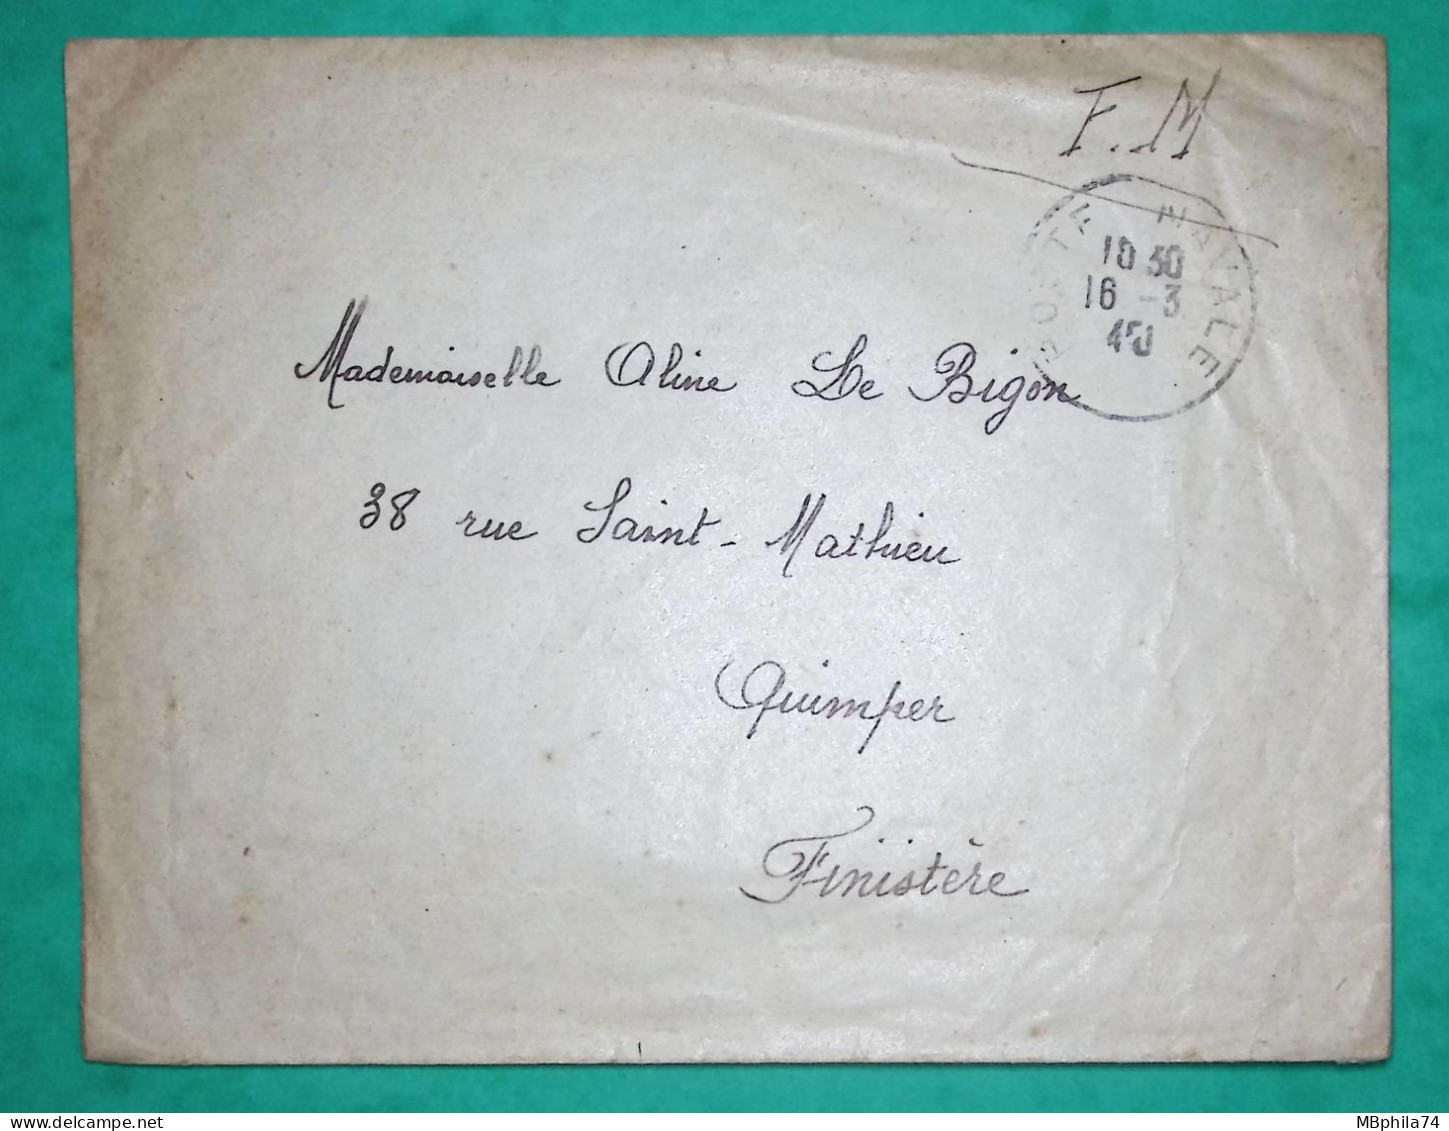 F.M
POSTE NAVALE
10 30
16 -3
40
Mademoiselle Aline Le Bigon
38 rue Saint-Mathieu
Quimper
Finistère
MBphila74
delcampe.net